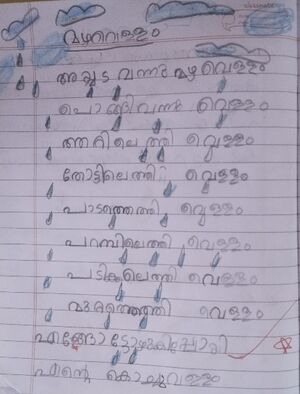 മഴവെള്ളം
അയ്യട വന്നു മഴ വെള്ളം
പൊങ്ങിവന്നു വെള്ളം
ആറ്റിലെത്തി വെള്ളം
തോട്ടിലെത്തി വെള്ളം
പാടത്തെത്തി വെള്ളം
പറമ്പിലെത്തി വെള്ളം
പടിക്കലെത്തി വെള്ളം
മുറ്റത്തെത്തി വെള്ളം
എങ്ങോട്ടൊഴുകിപ്പോയി
എന്റെ കൊച്ചുവള്ളം